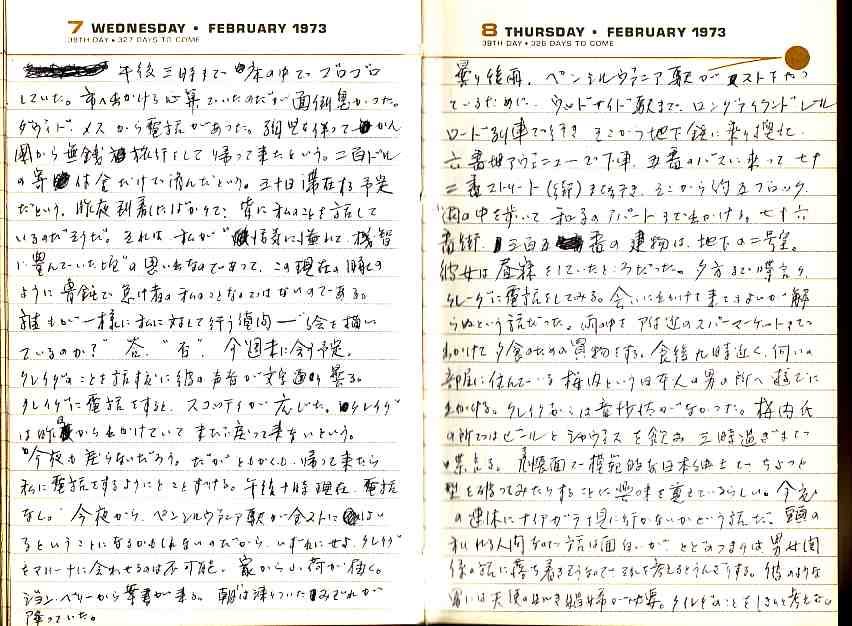 7 WEDNESDAY • FEBRUARY 1973
38TH DAY • 327 DAYS TO COME
午後三時まで 本の中で ゴロゴロ
していた。市へ出かける心算でいたのだが面倒臭かった。
デヴィド・メスから電話があった。
から無銭旅行をして帰って来たという。二百ドル
の 金だけで済んだという。五十日滞在する予定
だという。昨夜到着したばかりで、皆に私のことを話して
いるのだそうだ。それは、私が
に豊んでいた頃"の思い出なのであって、この現在の豚の
ように鈍で怠け者の私のことなのではないのである。
誰もが一様に私に対して行う質問—"絵を描い
ているのか?" 答、"否"。今週末に会う予定。
クレイグのことを話す度に彼の声音が文字通り曇る。
クレイグに電話をすると、スコッティが応じた。クレイグ
は昨夜から出かけていてまだ戻って来ないという。
"今夜も戻らないだろう。だがともかくも、帰って来たら
私に電話をするようにとことずける。午後十時現在、電話
なし。今夜から、ペンシルヴァニア駅が全ストに
るということになるかもしれないのだから、いずれにせよ、クレイグ
を に会わせるのは不可能。家から小荷が届く。
ジョン・ベリーから葉書が来る。朝は凍りついたみぞれが
降っていた。
8 THURSDAY • FEBRUARY 1973
39TH DAY • 326 DAYS TO COME
曇り後雨。ペンシルヴァニア駅がストをやっ
ているために、ウッドサイド駅まで、ロングアイランドレール
ロード列車で行き そこから地下鉄に乗り換え、
六番地アヴェニューで下車、五番のバスに乗って七十
二番ストリート(街)まで行き、そこから約五ブロック、
雨の中を歩いて 和子のアパートまで出かける。七十六
番街、三百五 番の建物は、地下の二号室。
彼女は昼寝をしていたところだった。夕方まで喋り、
クレーグに電話をしてみる。会いに出かけて来てもよいか解
らぬという話だった。雨の中をアパ近のスパーマーケットまで
出かけて夕食のための買物をする。食後九時近く、向いの
部屋に住んでいる梅内という日本人の男の所へ遊びに
出かける。クレイグからは音沙汰がなかった。梅内氏
の所ではビールと を飲み、三時過ぎまで
喋る。 模範的な日本紳士でちょっと
型を破ってみたりすることに興味を覚えているらしい。今
の連休にナイアガラ見に行かないかという話だ。頭の
人間なので話は面白いが、とどのつまりは男女関
係の話に落ち着きそうなので、それを考えるとうんざりする。彼のような
には天使の如き娼婦が必要。クレイグのことを